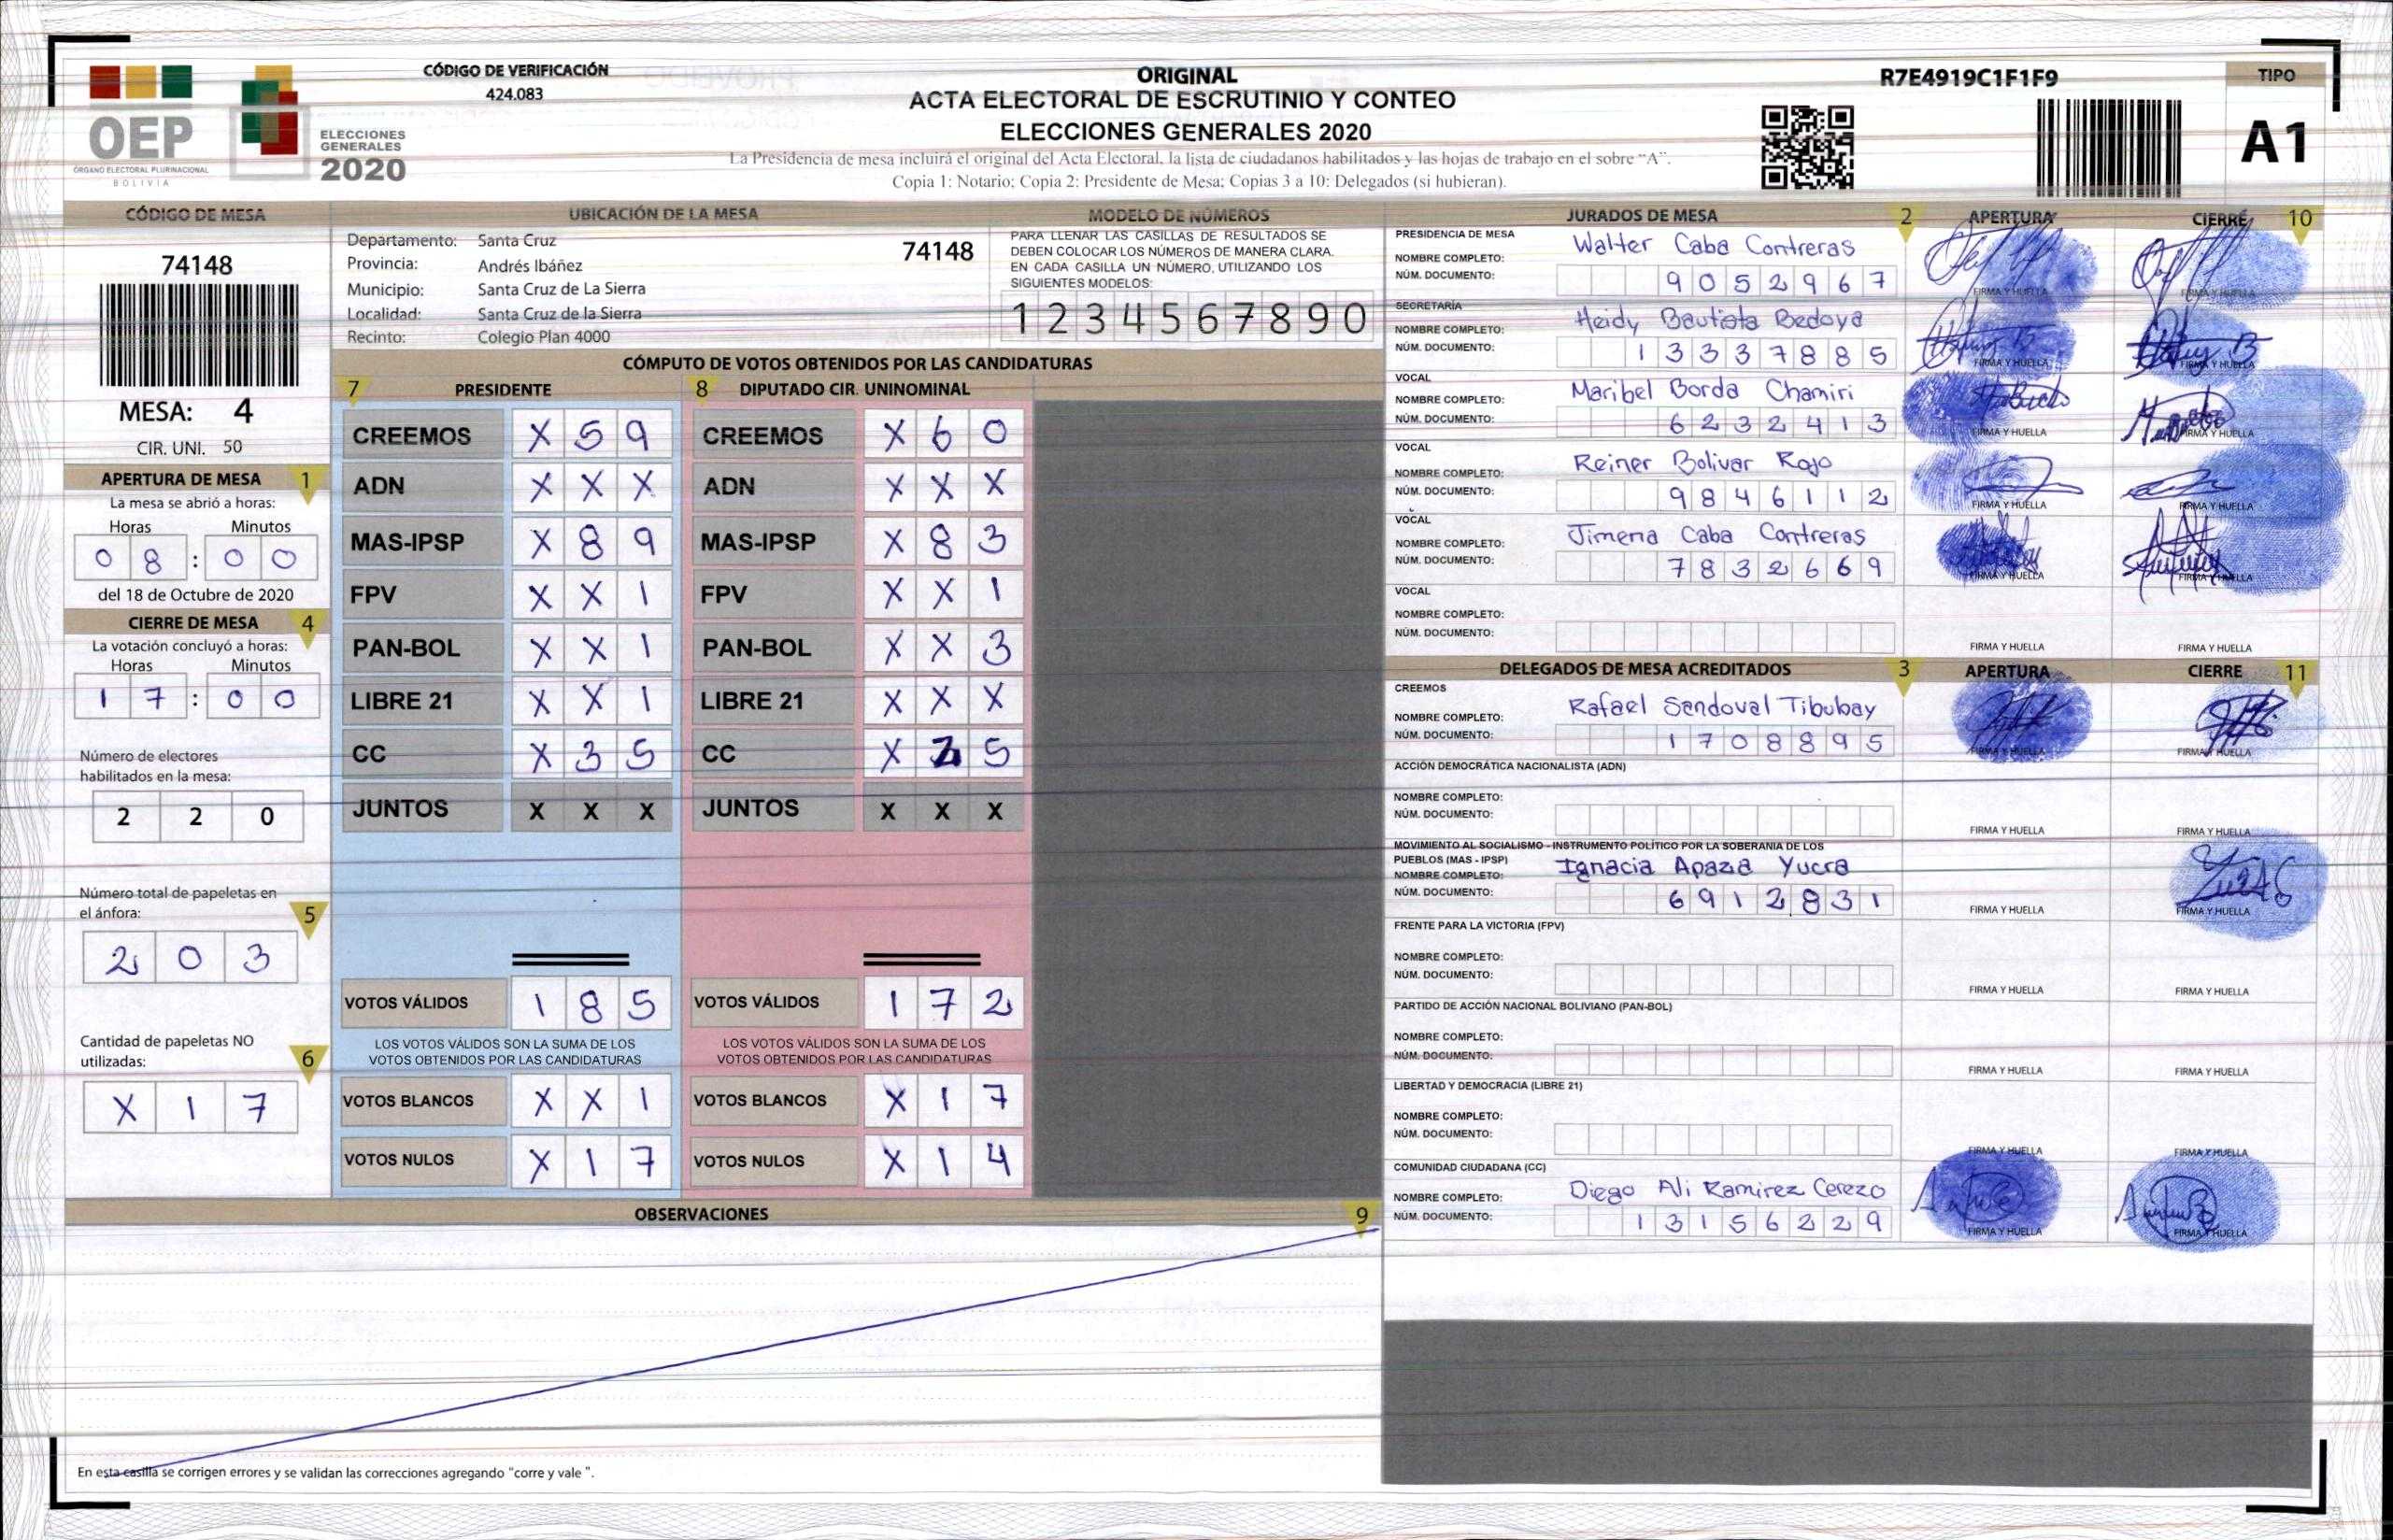 OEP
ÓRGANO ELECTORAL PLURINACIONAL
BOLIVIA
ELECCIONES
GENERALES
2020
CÓDIGO DE VERIFICACIÓN
424.083
ORIGINAL
ACTA ELECTORAL DE ESCRUTINIO Y CONTEO
ELECCIONES GENERALES 2020
La Presidencia de mesa incluirá el original del Acta Electoral, la lista de ciudadanos habilitados y las hojas de trabajo en el sobre "A".
Copia 1: Notario; Copia 2: Presidente de Mesa; Copias 3 a 10: Delegados (si hubieran).
R7E4919C1F1F9
TIPO
A1
CÓDIGO DE MESA
74148
MESA: 4
CIR. UNI. 50
APERTURA DE MESA 1
La mesa se abrió a horas:
Horas Minutos
0 8 : 0 0
del 18 de Octubre de 2020
CIERRE DE MESA 4
La votación concluyó a horas:
Horas Minutos
1 7 : 0 0
Número de electores
habilitados en la mesa:
2 2 0
Número total de papeletas en
el ánfora: 5
2 0 3
Cantidad de papeletas NO
utilizadas: 6
X 1 7
UBICACIÓN DE LA MESA
Departamento: Santa Cruz 74148
Provincia: Andrés Ibáñez
Municipio: Santa Cruz de La Sierra
Localidad: Santa Cruz de la Sierra
Recinto: Colegio Plan 4000
MODELO DE NÚMEROS
PARA LLENAR LAS CASILLAS DE RESULTADOS SE
DEBEN COLOCAR LOS NÚMEROS DE MANERA CLARA.
EN CADA CASILLA UN NÚMERO, UTILIZANDO LOS
SIGUIENTES MODELOS:
1 2 3 4 5 6 7 8 9 0
CÓMPUTO DE VOTOS OBTENIDOS POR LAS CANDIDATURAS
7 PRESIDENTE 8 DIPUTADO CIR. UNINOMINAL
CREEMOS X 5 9 CREEMOS X 6 0
ADN X X X ADN X X X
MAS-IPSP X 8 9 MAS-IPSP X 8 3
FPV X X 1 FPV X X 1
PAN-BOL X X 1 PAN-BOL X X 3
LIBRE 21 X X 1 LIBRE 21 X X X
CC X 3 5 CC X 2 5
JUNTOS X X X JUNTOS X X X
VOTOS VÁLIDOS 1 8 5 VOTOS VÁLIDOS 1 7 2
LOS VOTOS VÁLIDOS SON LA SUMA DE LOS
VOTOS OBTENIDOS POR LAS CANDIDATURAS
LOS VOTOS VÁLIDOS SON LA SUMA DE LOS
VOTOS OBTENIDOS POR LAS CANDIDATURAS
VOTOS BLANCOS X X 1 VOTOS BLANCOS X 1 7
VOTOS NULOS X 1 7 VOTOS NULOS X 1 4
OBSERVACIONES 9
En esta casilla se corrigen errores y se validan las correcciones agregando "corre y vale".
JURADOS DE MESA 2 APERTURA CIERRE 10
PRESIDENCIA DE MESA
NOMBRE COMPLETO: Walter Caba Contreras
NÚM. DOCUMENTO: 9052967
FIRMA Y HUELLA FIRMA Y HUELLA
SECRETARÍA
NOMBRE COMPLETO: Heidy Bautista Bedoya
NÚM. DOCUMENTO: 13337885
FIRMA Y HUELLA FIRMA Y HUELLA
VOCAL
NOMBRE COMPLETO: Maribel Borda Chamiri
NÚM. DOCUMENTO: 6232413
FIRMA Y HUELLA FIRMA Y HUELLA
VOCAL
NOMBRE COMPLETO: Reiner Bolivar Rojo
NÚM. DOCUMENTO: 9846112
FIRMA Y HUELLA FIRMA Y HUELLA
VOCAL
NOMBRE COMPLETO: Jimena Caba Contreras
NÚM. DOCUMENTO: 7832669
FIRMA Y HUELLA FIRMA Y HUELLA
VOCAL
NOMBRE COMPLETO:
NÚM. DOCUMENTO:
FIRMA Y HUELLA FIRMA Y HUELLA
DELEGADOS DE MESA ACREDITADOS 3 APERTURA CIERRE 11
CREEMOS
NOMBRE COMPLETO: Rafael Sandoval Tibubay
NÚM. DOCUMENTO: 1708895
FIRMA Y HUELLA FIRMA Y HUELLA
ACCIÓN DEMOCRÁTICA NACIONALISTA (ADN)
NOMBRE COMPLETO:
NÚM. DOCUMENTO:
FIRMA Y HUELLA FIRMA Y HUELLA
MOVIMIENTO AL SOCIALISMO - INSTRUMENTO POLÍTICO POR LA SOBERANIA DE LOS
PUEBLOS (MAS - IPSP)
NOMBRE COMPLETO: Ignacia Apaza Yucra
NÚM. DOCUMENTO: 6912831
FIRMA Y HUELLA FIRMA Y HUELLA
FRENTE PARA LA VICTORIA (FPV)
NOMBRE COMPLETO:
NÚM. DOCUMENTO:
FIRMA Y HUELLA FIRMA Y HUELLA
PARTIDO DE ACCIÓN NACIONAL BOLIVIANO (PAN-BOL)
NOMBRE COMPLETO:
NÚM. DOCUMENTO:
FIRMA Y HUELLA FIRMA Y HUELLA
LIBERTAD Y DEMOCRACIA (LIBRE 21)
NOMBRE COMPLETO:
NÚM. DOCUMENTO:
FIRMA Y HUELLA FIRMA Y HUELLA
COMUNIDAD CIUDADANA (CC)
NOMBRE COMPLETO: Diego Ali Ramirez Cerezo
NÚM. DOCUMENTO: 13156229
FIRMA Y HUELLA FIRMA Y HUELLA